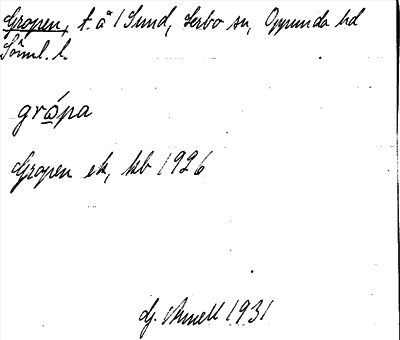 Gropen, t. å 1 Sund, Lerbo sn, Oppunda hd
Söml. l.
grǻpa
Gropen ek, kb 1926
G. Annell 1931